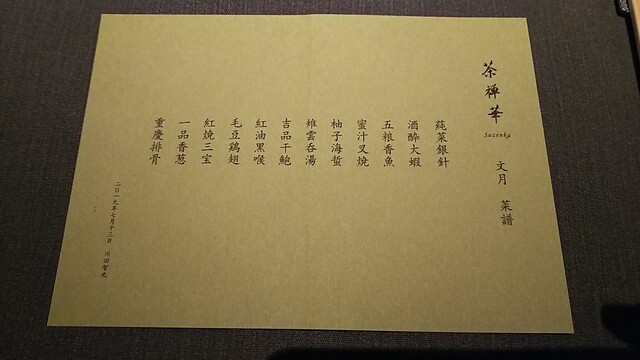 茶禅華
Sazenka
文月 菜譜
蒓菜銀針
酒酔大蝦
五粮香魚
蜜汁叉焼
柚子海蜇
雉雲呑湯
吉品干鮑
紅油黒喉
毛豆鶏翅
紅焼三宝
一品香葱
重慶排骨
二〇一九年七月十三日 川田智也